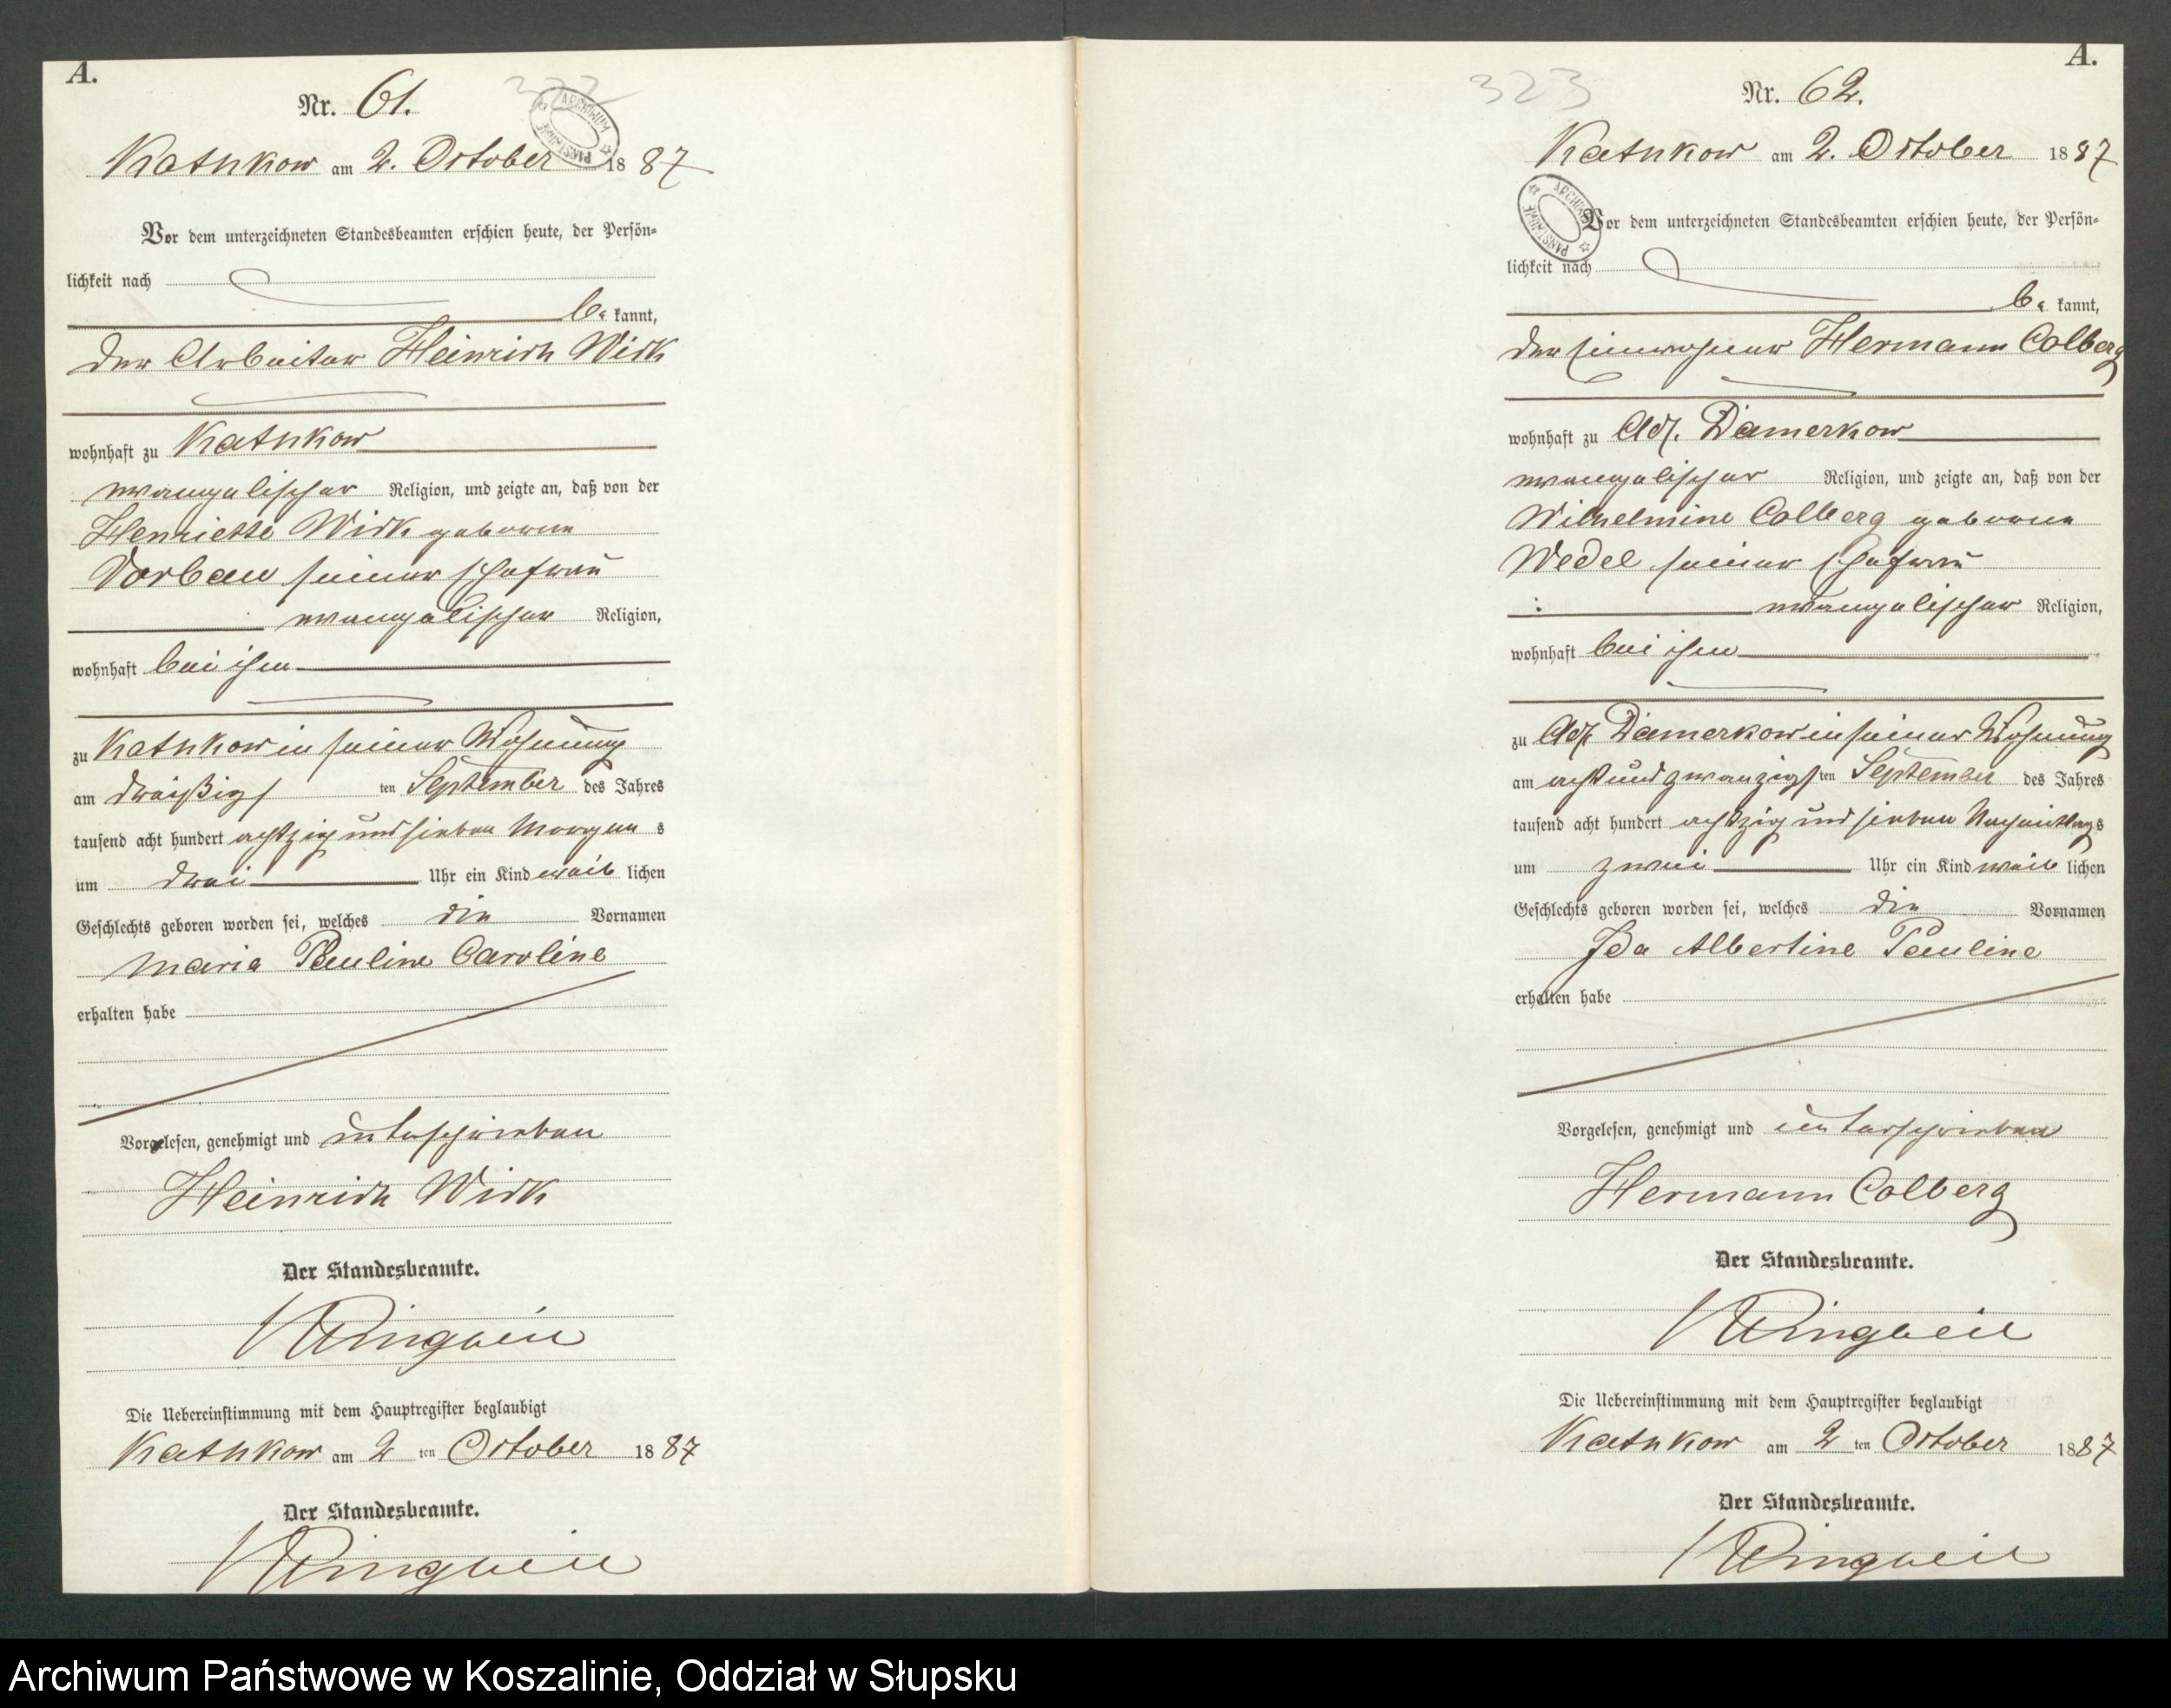 A.
Nr. 61.
322
ARCHIWUM PAŃSTWOWE
Kathkow am 2. October 1887
Vor dem unterzeichneten Standesbeamten erschien heute, der Persön-
lichkeit nach
be kannt,
der Arbeiter Heinrich Wick
wohnhaft zu Kathkow
evangelischer Religion, und zeigte an, daß von der
Henriette Wick geborene
Vorbau seiner Ehefrau
evangelischer Religion,
wohnhaft bei ihm
zu Kathkow in seiner Wohnung
am dreißigs ten September des Jahres
tausend acht hundert achtzig und sieben Morgen s
um drei Uhr ein Kind weib lichen
Geschlechts geboren worden sei, welches die Vornamen
Maria Pauline Caroline
erhalten habe
Vorgelesen, genehmigt und unterschrieben
Heinrich Wick
Der Standesbeamte.
Die Uebereinstimmung mit dem Hauptregister beglaubigt
Kathkow am 2 ten October 1887
Der Standesbeamte.
A.
323
Nr. 62.
Kathkow am 2. October 1887
ARCHIWUM PAŃSTWOWE
Vor dem unterzeichneten Standesbeamten erschien heute, der Persön-
lichkeit nach
be kannt,
der Einwohner Hermann Colberg
wohnhaft zu Adl. Damerkow
evangelischer Religion, und zeigte an, daß von der
Wilhelmine Colberg geborene
Wedel seiner Ehefrau
evangelischer Religion,
wohnhaft bei ihm
zu Adl Damerkow in seiner Wohnung
am acht und zwanzigs ten September des Jahres
tausend acht hundert achtzig und sieben Nachmittags
um zwei Uhr ein Kind weib lichen
Geschlechts geboren worden sei, welches die Vornamen
Ida Albertine Pauline
erhalten habe
Vorgelesen, genehmigt und unterschrieben
Hermann Colberg
Der Standesbeamte.
Die Uebereinstimmung mit dem Hauptregister beglaubigt
Kathkow am 2 ten October 1887
Der Standesbeamte.
Archiwum Państwowe w Koszalinie, Oddział w Słupsku